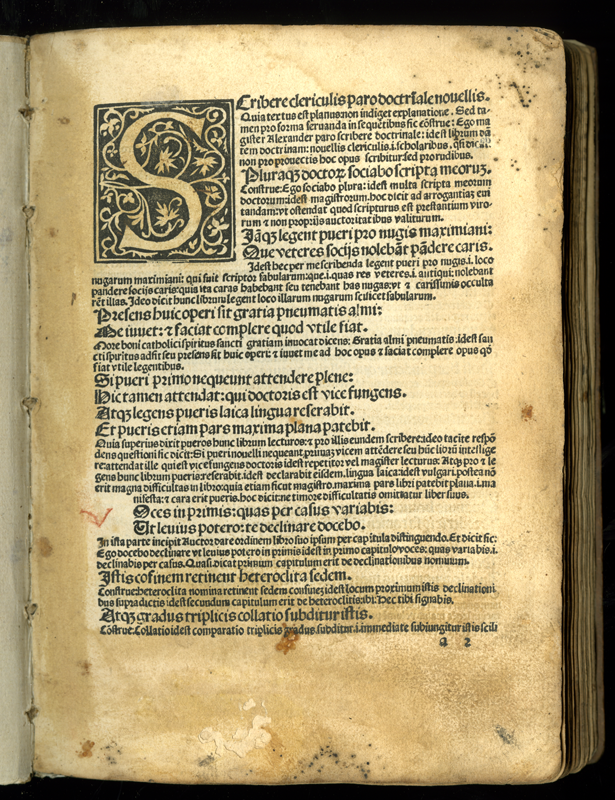 Scribere clericulis paro doctrinale novellis.
Quia textus est planus: non indiget explanatione. Sed ta-
men pro forma seruanda in sequẽtibus sic cõstrue: Ego ma
gister Alexander paro scribere doctrinale: idest librum dã
tem doctrinam: nouellis clericulis.i.scholaribus.
non pro prouectis hoc opus scribitur sed pro rudibus.
Pluraqȝ doctoꝝ sociabo scripta meoruꝫ.
Construe: Ego sociabo plura: idest multa scripta meorum
doctorum: idest magistrorum. hoc dicit ad arrogantiaꝫ eui
tandam: vt ostendat quod scripturus est prestantium viro-
rum ⁊ non propriis auctoritatibus valiturum.
Iãqȝ legent pueri pro nugis maximiani:
Que veteres socijs nolebãt pãdere caris.
Idest hec per me scribenda legent pueri pro nugis.i.loco
nugarum maximiani: qui fuit scriptor fabularum: que.i.quas res veteres.i.antiqui: nolebant
pandere socijs caris: quia ita caras habebant seu tenebant has nugas: vt ⁊ carissimis occulta
rẽt illas. Ideo dicit hunc librum legent loco illarum nugarum scilicet fabularum.
Presens huic operi sit gratia pneumatis almi:
Me iuuet: ⁊ faciat complere quod vtile fiat.
More boni catholici spiritus sancti gratiam inuocat dicens: Gratia almi pneumatis.idest san
cti spiritus adsit seu presens sit huic operi: ⁊ iuuet me ad hoc opus ⁊ faciat complere opus qõ
fiat vtile legentibus.
Si pueri primo nequeunt attendere plene:
Hic tamen attendat: qui doctoris est vice fungens.
Atqȝ legens pueris laica lingua reserabit.
Et pueris etiam pars maxima plana patebit.
Quia superius dixit pueros hunc librum lecturos: ⁊ pro illis eundem scribere: ideo tacite respõ
dens questioni sic dicit: Si pueri nouelli nequeant primaꝫ vicem attẽdere seu hũc librũ intellige
re: attendat ille qui est vice fungens doctoris idest repetitor vel magister lecturus: Atqȝ pro ⁊ le
gens hunc librum pueris: reserabit.idest declarabit eisdem. lingua laica: idest vulgari. postea nõ
erit magna difficultas in libro: quia etiam sicut magistro. maxima pars libri patebit plana.i.ma
nifesta: ⁊ cara erit pueris. hoc dicit: ne timore difficultatis omittatur liber suus.
Voces in primis: quas per casus variabis:
Ut leuius potero: te declinare docebo.
In ista parte incipit Auctor dare ordinem libro suo ipsum per capitula distinguendo. Et dicit sic:
Ego docebo declinare vt leuius potero in primis idest in primo capitulo voces: quas variabis.i.
declinabis per casus. Quasi dicat primum capitulum erit de declinationibus nominum.
Istis cofinem retinent heteroclita sedem.
Construe: heteroclita nomina retinent sedem confinem idest locum proximum istis declinationi
bus supradictis idest secundum capitulum erit de heteroclitis: ibi: Hec tibi signabis.
Atqȝ gradus triplicis collatio subditur istis.
Cõstrue: Collatio idest comparatio triplicis gradus subditur.i.immediate subiungitur istis scili
a 2